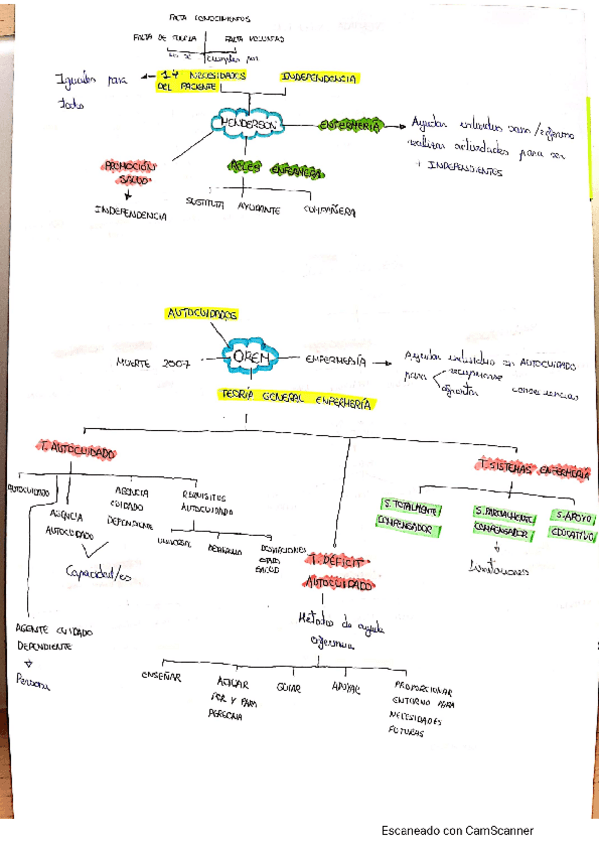 FALTA CONOCIMIENTOS
FALTA DE FUERZA
FALTA VOLUNTAD
no se
cumplen por
Iguales para
todo
14 NECESIDADES
DEL PACIENTE
INDEPENDENCIA
HENDERSON
ENFERMERÍA
Ayudar individuo sano/enfermo
realizar actividades para ser
+ INDEPENDIENTES
PROMOCIÓN
SALUD
INDEPENDENCIA
ROLES ENFERMERA
SUSTITUTA
AYUDANTE
COMPAÑERA
AUTOCUIDADOS
MUERTE 2007
OREM
ENFERMERÍA
Ayudar individuo en AUTOCUIDADO
para
recuperarse
afrontar
consecuencias
TEORÍA GENERAL ENFERMERÍA
T. AUTOCUIDADO
T. SISTEMAS ENFERMERÍA
AUTOCUIDADO
AGENCIA
AUTOCUIDADO
AGENCIA
CUIDADO
DEPENDIENTE
REQUISITOS
AUTOCUIDADO
UNIVERSAL
DESARROLLO
DESVIACIONES
ESTADO
SALUD
Capacidad/es
S. TOTALMENTE
COMPENSADOR
S. PARCIALMENTE
COMPENSADOR
S. APOYO
EDUCATIVO
Limitaciones
T. DÉFICIT
AUTOCUIDADO
Métodos de ayuda
enfermera
AGENTE CUIDADO
DEPENDIENTE
Persona
ENSEÑAR
ACTUAR
POR Y PARA
PERSONA
GUIAR
APOYAR
PROPORCIONAR
ENTORNO PARA
NECESIDADES
FUTURAS
Escaneado con CamScanner